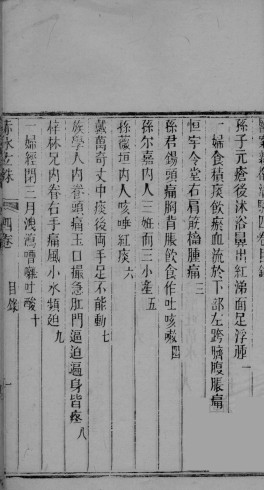 孫子元瘡後沐浴鼻出紅涕面足浮腫 一
一婦食積痰飲瘀血流於下部左胯臍腹脹痛 二
恒宇令堂右肩筋榴腫痛 三
孫君錫頭痛胸背脹飲食作吐咳嗽 四
孫尔嘉內人三姙而三小產 五
孫蘭垣內人咳唾紅痰 六
戴萬奇丈中痰後兩手足不能動 七
族學人內眷頭痛玉口撮急肛門逼迫遍身皆痠 八
程林兄內眷右手痛風小水頻迫 九
一婦經閉三月洩瀉嘈雜吐酸 十
赤水玄珠 四卷 目錄 一